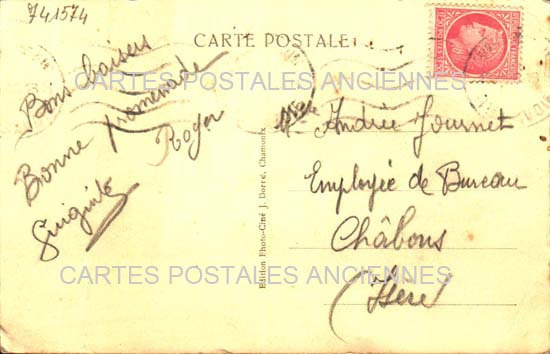 741574
CARTE POSTALE
CARTES POSTALES ANCIENNES
Bons baisers
Bonne promenade
Roger
Mlle Andrée Journet
Employée de Bureau
Châbons
(Isère)
Edition Photo-Ciné J. Dorré, Chamonix
CARTES POSTALES ANCIENNES